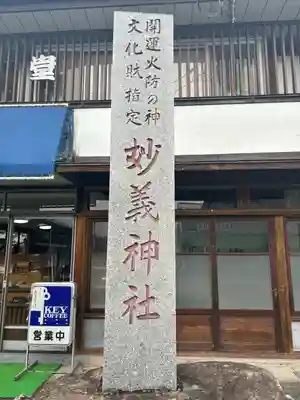 開運火防の神
文化財指定
妙義神社
KEY
COFFEE
営業中